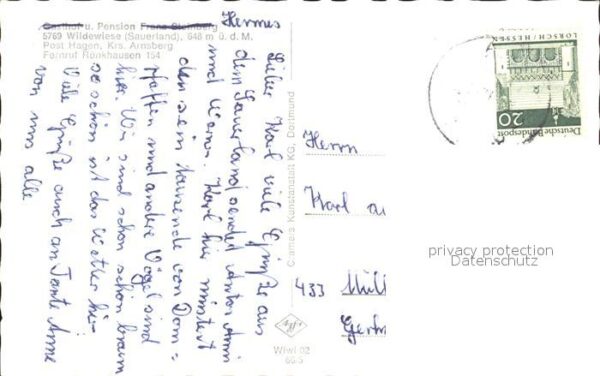 Gasthof u. Pension Franz Steinberg
Hermes
5769 Wildewiese (Sauerland), 646 m ü. d. M.
Post Hagen, Krs. Arnsberg
Fernruf Rönkhausen 154
Lieber Karl viele Grüße aus
dem Sauerland senden
und Karl hier
den sein tausende von Dom=
pfaffen und andere Vögel sind
hier. Wir sind schon schön braun
so schön ist das Wetter hier
Viele Grüße auch an Tante Anne
von uns alle
Cramers Kunstanstalt KG, Dortmund
WIWI 02
Herrn
Karl
433 Mül
LORSCH / HESSEN
20
Deutsche Bundespost
privacy protection
Datenschutz